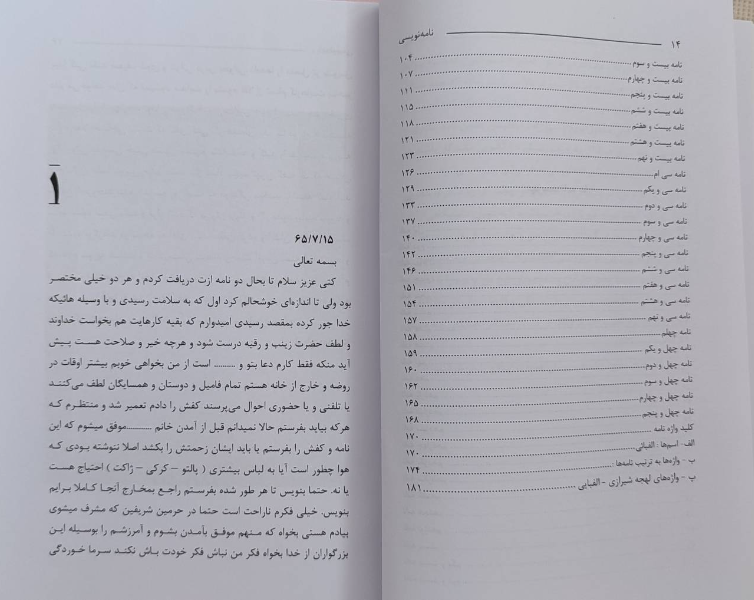 ۱۴ نامه‌نویسی
نامه بیست و سوم ۱۰۴
نامه بیست و چهارم ۱۰۷
نامه بیست و پنجم ۱۱۱
نامه بیست و ششم ۱۱۵
نامه بیست و هفتم ۱۱۸
نامه بیست و هشتم ۱۲۱
نامه بیست و نهم ۱۲۳
نامه سی ام ۱۲۶
نامه سی و یکم ۱۲۹
نامه سی و دوم ۱۳۳
نامه سی و سوم ۱۳۷
نامه سی و چهارم ۱۴۰
نامه سی و پنجم ۱۴۲
نامه سی و ششم ۱۴۶
نامه سی و هفتم ۱۵۱
نامه سی و هشتم ۱۵۴
نامه سی و نهم ۱۵۷
نامه چهلم ۱۵۸
نامه چهل و یکم ۱۵۹
نامه چهل و دوم ۱۶۰
نامه چهل و سوم ۱۶۲
نامه چهل و چهارم ۱۶۵
نامه چهل و پنجم ۱۶۸
کلید واژه نامه ۱۷۰
الف- اسم‌ها : الفبائی ۱۷۰
ب - واژه‌ها به ترتیب نامه‌ها : ۱۷۴
پ - واژه‌های لهجه شیرازی - الفبایی ۱۸۱
۱
۶۵/۷/۱۵
بسمه تعالی
کتی عزیز سلام تا بحال دو نامه ازت دریافت کردم و هر دو خیلی مختصر
بود ولی تا اندازه‌ای خوشحالم کرد اول که به سلامت رسیدی و با وسیله هائیکه
خدا جور کرده بمقصد رسیدی امیدوارم که بقیه کارهایت هم بخواست خداوند
و لطف حضرت زینب و رقیه درست شود و هرچه خیر و صلاحت هست پیش
آید منکه فقط کارم دعا بتو و .......... است از من بخواهی خوبم بیشتر اوقات در
روضه و خارج از خانه هستم تمام فامیل و دوستان و همسایگان لطف می‌کنند
یا تلفنی و یا حضوری احوال می‌پرسند کفش را دادم تعمیر شد و منتظرم که
هرکه بیاید بفرستم حالا نمیدانم قبل از آمدن خانم ...........موفق میشوم که این
نامه و کفش را بفرستم یا باید ایشان زحمتش را بکشد اصلا ننوشته بودی که
هوا چطور است آیا به لباس بیشتری ( پالتو - کرکی - ژاکت ) احتیاج هست
یا نه. حتما بنویس تا هر طور شده بفرستم راجع بمخارج آنجا کاملا برایم
بنویس. خیلی فکرم ناراحت است حتما در حرمین شریفین که مشرف میشوی
بیادم هستی بخواه که منهم موفق بآمدن بشوم و آمرزشم را بوسیله این
بزرگواران از خدا بخواه فکر من نباش فکر خودت باش نکند سرما خوردگی